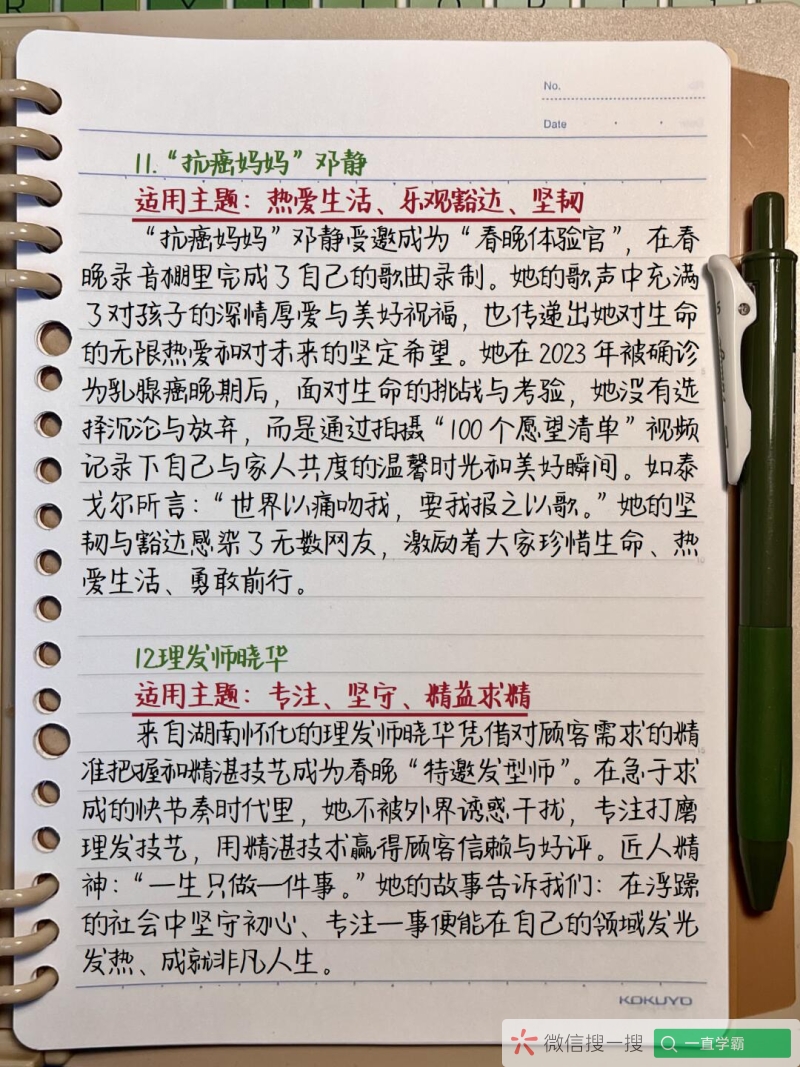 No.
Date
11.“抗癌妈妈”邓静
适用主题：热爱生活、乐观豁达、坚韧
“抗癌妈妈”邓静受邀成为“春晚体验官”，在春
晚录音棚里完成了自己的歌曲录制。她的歌声中充满
了对孩子的深情厚爱与美好祝福，也传递出她对生命
的无限热爱和对未来的坚定希望。她在2023年被确诊
为乳腺癌晚期后，面对生命的挑战与考验，她没有选
择沉沦与放弃，而是通过拍摄“100个愿望清单”视频
记录下自己与家人共度的温馨时光和美好瞬间。如泰
戈尔所言：“世界以痛吻我，要我报之以歌。”她的坚
韧与豁达感染了无数网友，激励着大家珍惜生命、热
爱生活、勇敢前行。
12理发师晓华
适用主题：专注、坚守、精益求精
来自湖南怀化的理发师晓华凭借对顾客需求的精
准把握和精湛技艺成为春晚“特邀发型师”。在急于求
成的快节奏时代里，她不被外界诱惑干扰，专注打磨
理发技艺，用精湛技术赢得顾客信赖与好评。匠人精
神：“一生只做一件事。”她的故事告诉我们：在浮躁
的社会中坚守初心、专注一事便能在自己的领域发光
发热、成就非凡人生。
KOKUYO
微信搜一搜
一直学霸